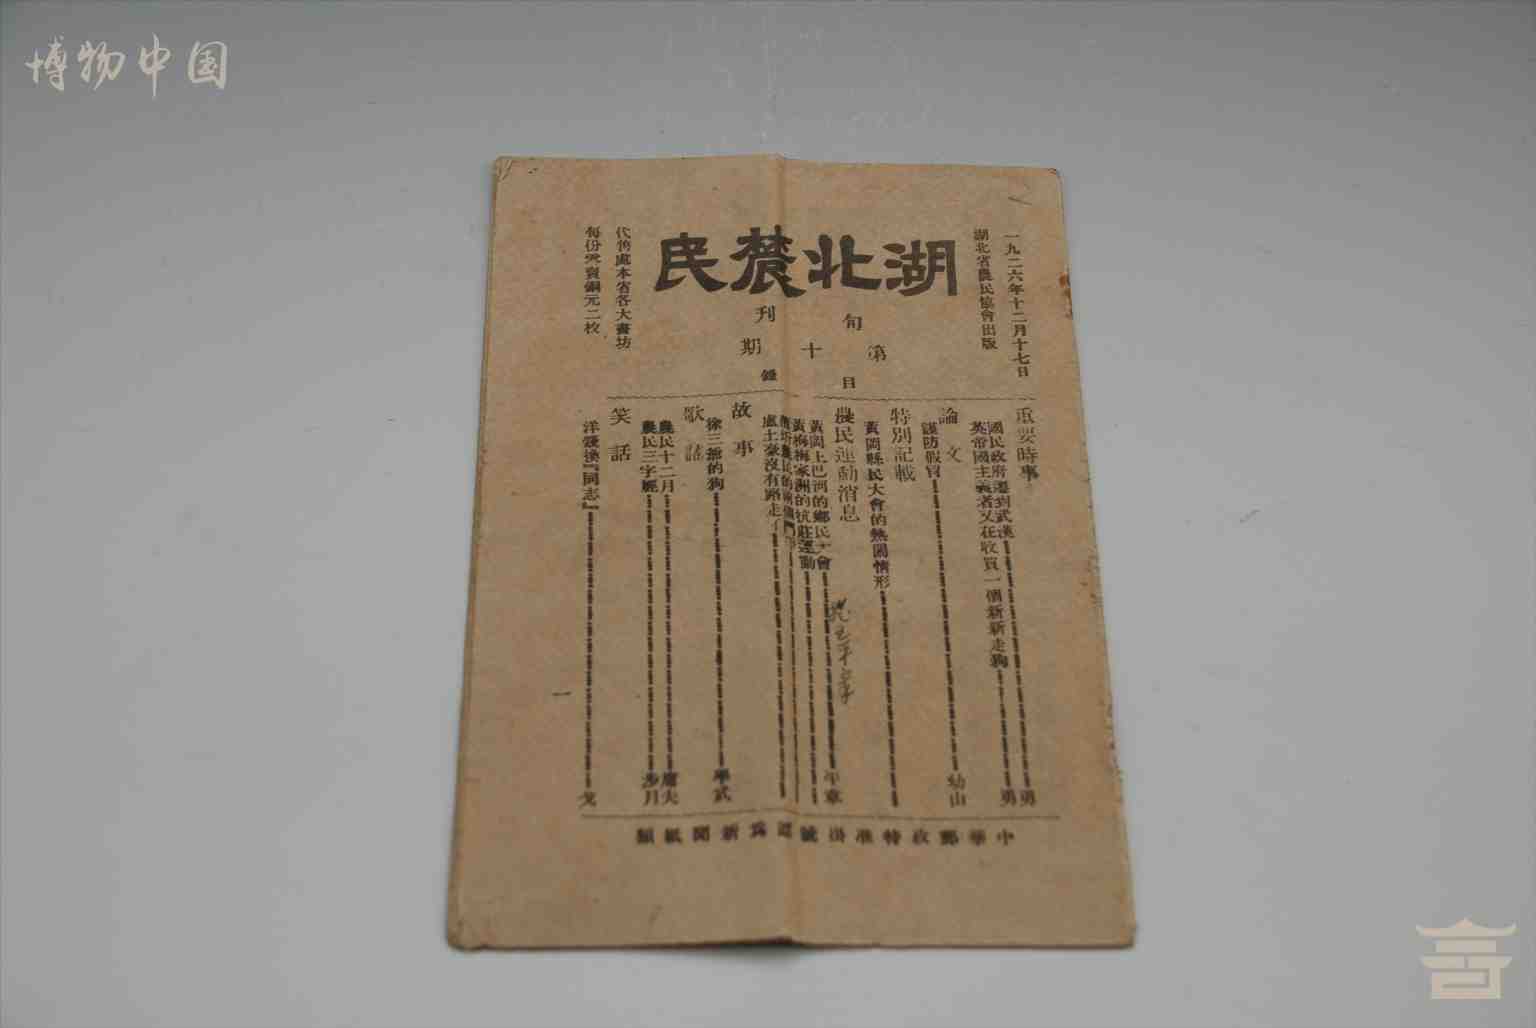 博物中国
一九二六年十二月十七日
湖北省農民協會出版
湖北農民
旬刊
第十期
目錄
代售處本省各大書坊
每份零賣銅元二枚
重要時事
國民政府遷到武漢 勇
英帝國主義者又在收買一個新新走狗 勇
論文
謹防假冒 幼山
特別記載
黃岡縣民大會的熱鬧情形
農民運動消息
黃岡上巴河的鄉民大會 平章
黃梅梅家洲的抗莊運動
土豪沒有路走了
故事
徐三爺的狗 學武
歌謠
農民十二月 庸夫
農民三字經 步月
笑話
洋錢換『同志』 戈
一
中華郵政特准掛號認爲新聞紙類